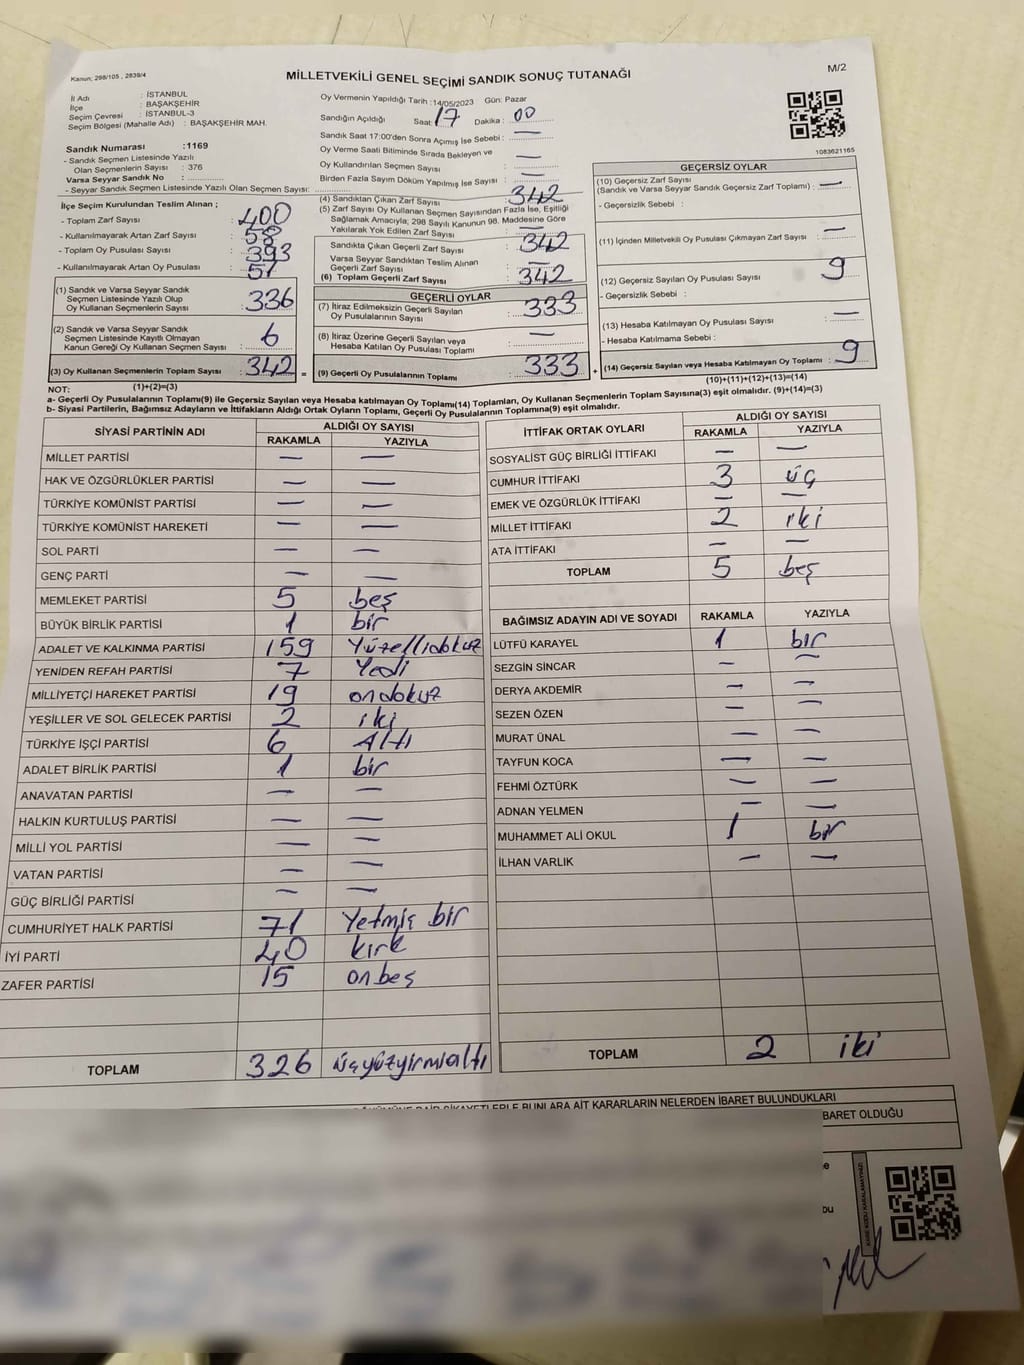 Kanun; 298/105 , 2839/4
MİLLETVEKİLİ GENEL SEÇİMİ SANDIK SONUÇ TUTANAĞI
M/2
İl Adı : İSTANBUL
İlçe : BAŞAKŞEHİR
Seçim Çevresi : İSTANBUL-3
Seçim Bölgesi (Mahalle Adı) : BAŞAKŞEHİR MAH.
Sandık Numarası :1169
- Sandık Seçmen Listesinde Yazılı
Olan Seçmenlerin Sayısı : 376
Varsa Seyyar Sandık No :
- Seyyar Sandık Seçmen Listesinde Yazılı Olan Seçmen Sayısı:
Oy Vermenin Yapıldığı Tarih :14/05/2023 Gün: Pazar
Sandığın Açıldığı Saat: 17 Dakika : 00
Sandık Saat 17:00'den Sonra Açımış İse Sebebi : —
Oy Verme Saati Bitiminde Sırada Bekleyen ve
Oy Kullandırılan Seçmen Sayısı : —
Birden Fazla Sayım Döküm Yapılmış İse Sayısı : —
1083621165
İlçe Seçim Kurulundan Teslim Alınan ;
- Toplam Zarf Sayısı : 400
- Kullanılmayarak Artan Zarf Sayısı : 58
- Toplam Oy Pusulası Sayısı : 393
- Kullanılmayarak Artan Oy Pusulası : 51
(1) Sandık ve Varsa Seyyar Sandık
Seçmen Listesinde Yazılı Olup
Oy Kullanan Seçmenlerin Sayısı : 336
(2) Sandık ve Varsa Seyyar Sandık
Seçmen Listesinde Kayıtlı Olmayan
Kanun Gereği Oy Kullanan Seçmen Sayısı : 6
(3) Oy Kullanan Seçmenlerin Toplam Sayısı : 342
(4) Sandıktan Çıkan Zarf Sayısı : 342
(5) Zarf Sayısı Oy Kullanan Seçmen Sayısından Fazla İse, Eşitliği
Sağlamak Amacıyla; 298 Sayılı Kanunun 98. Maddesine Göre
Yakılarak Yok Edilen Zarf Sayısı : —
Sandıkta Çıkan Geçerli Zarf Sayısı : 342
Varsa Seyyar Sandıktan Teslim Alınan
Geçerli Zarf Sayısı : —
(6) Toplam Geçerli Zarf Sayısı : 342
GEÇERLİ OYLAR
(7) İtiraz Edilmeksizin Geçerli Sayılan
Oy Pusulalarının Sayısı : 333
(8) İtiraz Üzerine Geçerli Sayılan veya
Hesaba Katılan Oy Pusulası Toplamı : —
= (9) Geçerli Oy Pusulalarının Toplamı : 333 +
GEÇERSİZ OYLAR
(10) Geçersiz Zarf Sayısı
(Sandık ve Varsa Seyyar Sandık Geçersiz Zarf Toplamı) : —
- Geçersizlik Sebebi :
(11) İçinden Milletvekili Oy Pusulası Çıkmayan Zarf Sayısı : —
(12) Geçersiz Sayılan Oy Pusulası Sayısı : 9
- Geçersizlik Sebebi :
(13) Hesaba Katılmayan Oy Pusulası Sayısı : —
- Hesaba Katılmama Sebebi :
(14) Geçersiz Sayılan veya Hesaba Katılmayan Oy Toplamı : 9
NOT: (1)+(2)=(3) (10)+(11)+(12)+(13)=(14)
a- Geçerli Oy Pusulalarının Toplamı(9) ile Geçersiz Sayılan veya Hesaba Katılmayan Oy Toplamı(14) Toplamları, Oy Kullanan Seçmenlerin Toplam Sayısına(3) eşit olmalıdır. (9)+(14)=(3)
b- Siyasi Partilerin, Bağımsız Adayların ve İttifakların Aldığı Ortak Oyların Toplamı, Geçerli Oy Pusulalarının Toplamına(9) eşit olmalıdır.
SİYASİ PARTİNİN ADI ALDIĞI OY SAYISI
RAKAMLA YAZIYLA
MİLLET PARTİSİ — —
HAK VE ÖZGÜRLÜKLER PARTİSİ — —
TÜRKİYE KOMÜNİST PARTİSİ — —
TÜRKİYE KOMÜNİST HAREKETİ — —
SOL PARTİ — —
GENÇ PARTİ — —
MEMLEKET PARTİSİ 5 beş
BÜYÜK BİRLİK PARTİSİ 1 bir
ADALET VE KALKINMA PARTİSİ 159 Yüzellidokuz
YENİDEN REFAH PARTİSİ 7 Yedi
MİLLİYETÇİ HAREKET PARTİSİ 19 ondokuz
YEŞİLLER VE SOL GELECEK PARTİSİ 2 iki
TÜRKİYE İŞÇİ PARTİSİ 6 Altı
ADALET BİRLİK PARTİSİ 1 bir
ANAVATAN PARTİSİ — —
HALKIN KURTULUŞ PARTİSİ — —
MİLLİ YOL PARTİSİ — —
VATAN PARTİSİ — —
GÜÇ BİRLİĞİ PARTİSİ — —
CUMHURİYET HALK PARTİSİ 71 Yetmiş bir
İYİ PARTİ 40 kırk
ZAFER PARTİSİ 15 onbeş
TOPLAM 326 üçyüzyirmialtı
İTTİFAK ORTAK OYLARI ALDIĞI OY SAYISI
RAKAMLA YAZIYLA
SOSYALİST GÜÇ BİRLİĞİ İTTİFAKI — —
CUMHUR İTTİFAKI 3 üç
EMEK VE ÖZGÜRLÜK İTTİFAKI — —
MİLLET İTTİFAKI 2 iki
ATA İTTİFAKI — —
TOPLAM 5 beş
BAĞIMSIZ ADAYIN ADI VE SOYADI RAKAMLA YAZIYLA
LÜTFÜ KARAYEL 1 bir
SEZGİN SİNCAR — —
DERYA AKDEMİR — —
SEZEN ÖZEN — —
MURAT ÜNAL — —
TAYFUN KOCA — —
FEHMİ ÖZTÜRK — —
ADNAN YELMEN — —
MUHAMMET ALİ OKUL 1 bir
İLHAN VARLIK — —
TOPLAM 2 iki
ŞİKAYETLERLE BUNLARA AİT KARARLARIN NELERDEN İBARET BULUNDUKLARI
BARET OLDUĞU
KARE KODU KARALAMAYINIZ!